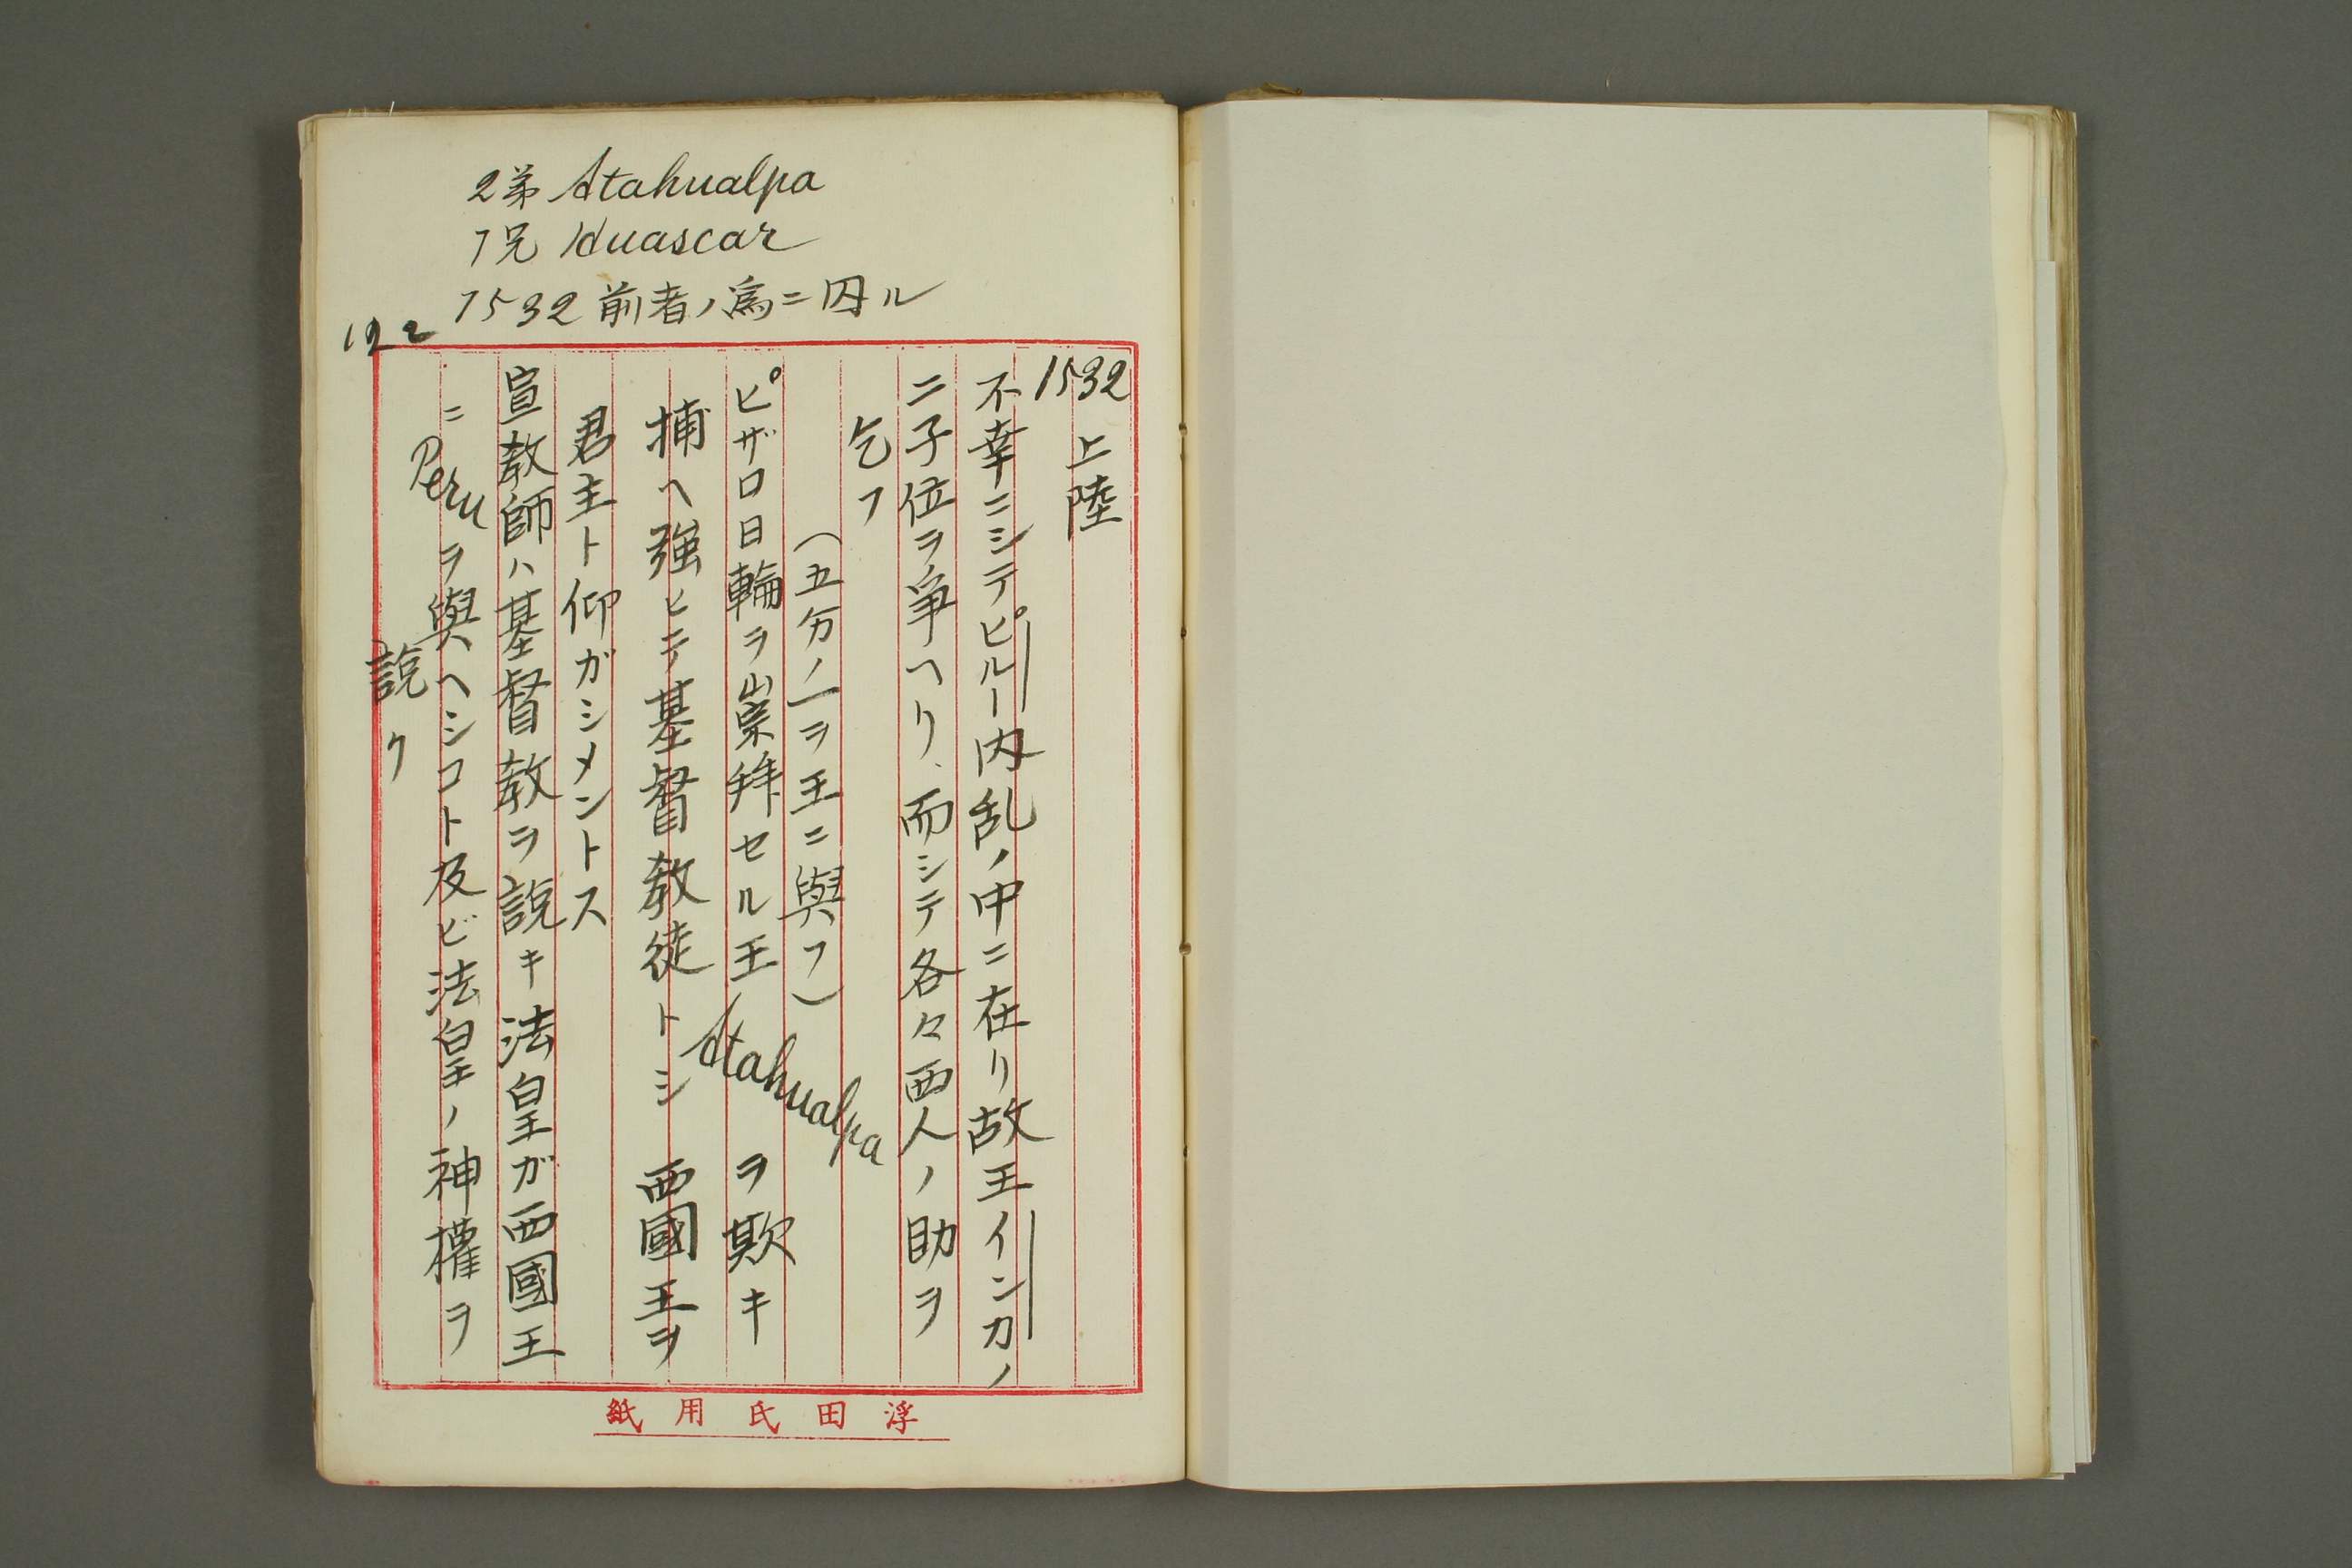 2弟 Atahualpa
1兄 Huascar
1532 前者ノ爲ニ囚ル
122
1532 上陸
不幸ニシテピルー内乱ノ中ニ在リ故王インカノ
二子位ヲ爭ヘリ、而シテ各々西人ノ助ヲ
乞フ
(五分ノ一ヲ王ニ與フ)
ピザロ日輪ヲ崇拜セル王 Atahualpa ヲ欺キ
捕ヘ強ヒテ基督教徒トシ 西國王ヲ
君主ト仰ガシメントス
宣教師ハ基督教ヲ説キ法皇ガ西國王
ニ Peru ヲ與ヘシコト及ビ法皇ノ神權ヲ
説ク
浮田氏用紙